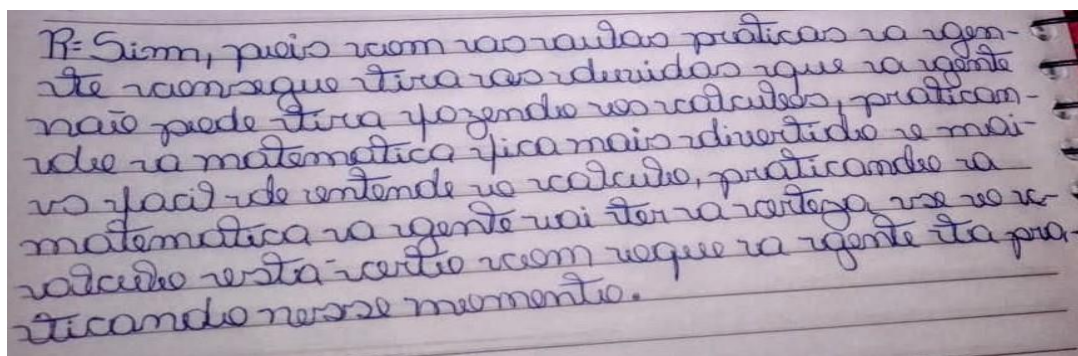 R= Sim, pois com as aulas práticas a gen-
te consegue tira as duvidas que a gente
não pode tira fazendo os calculos, pratican-
do a matematica fica mais divertido e mai-
s facil de entende o calculo, praticando a
matematica a gente vai ter a certeza se o c-
alculo esta certo com oque a gente ta pra-
ticando nesse momento.